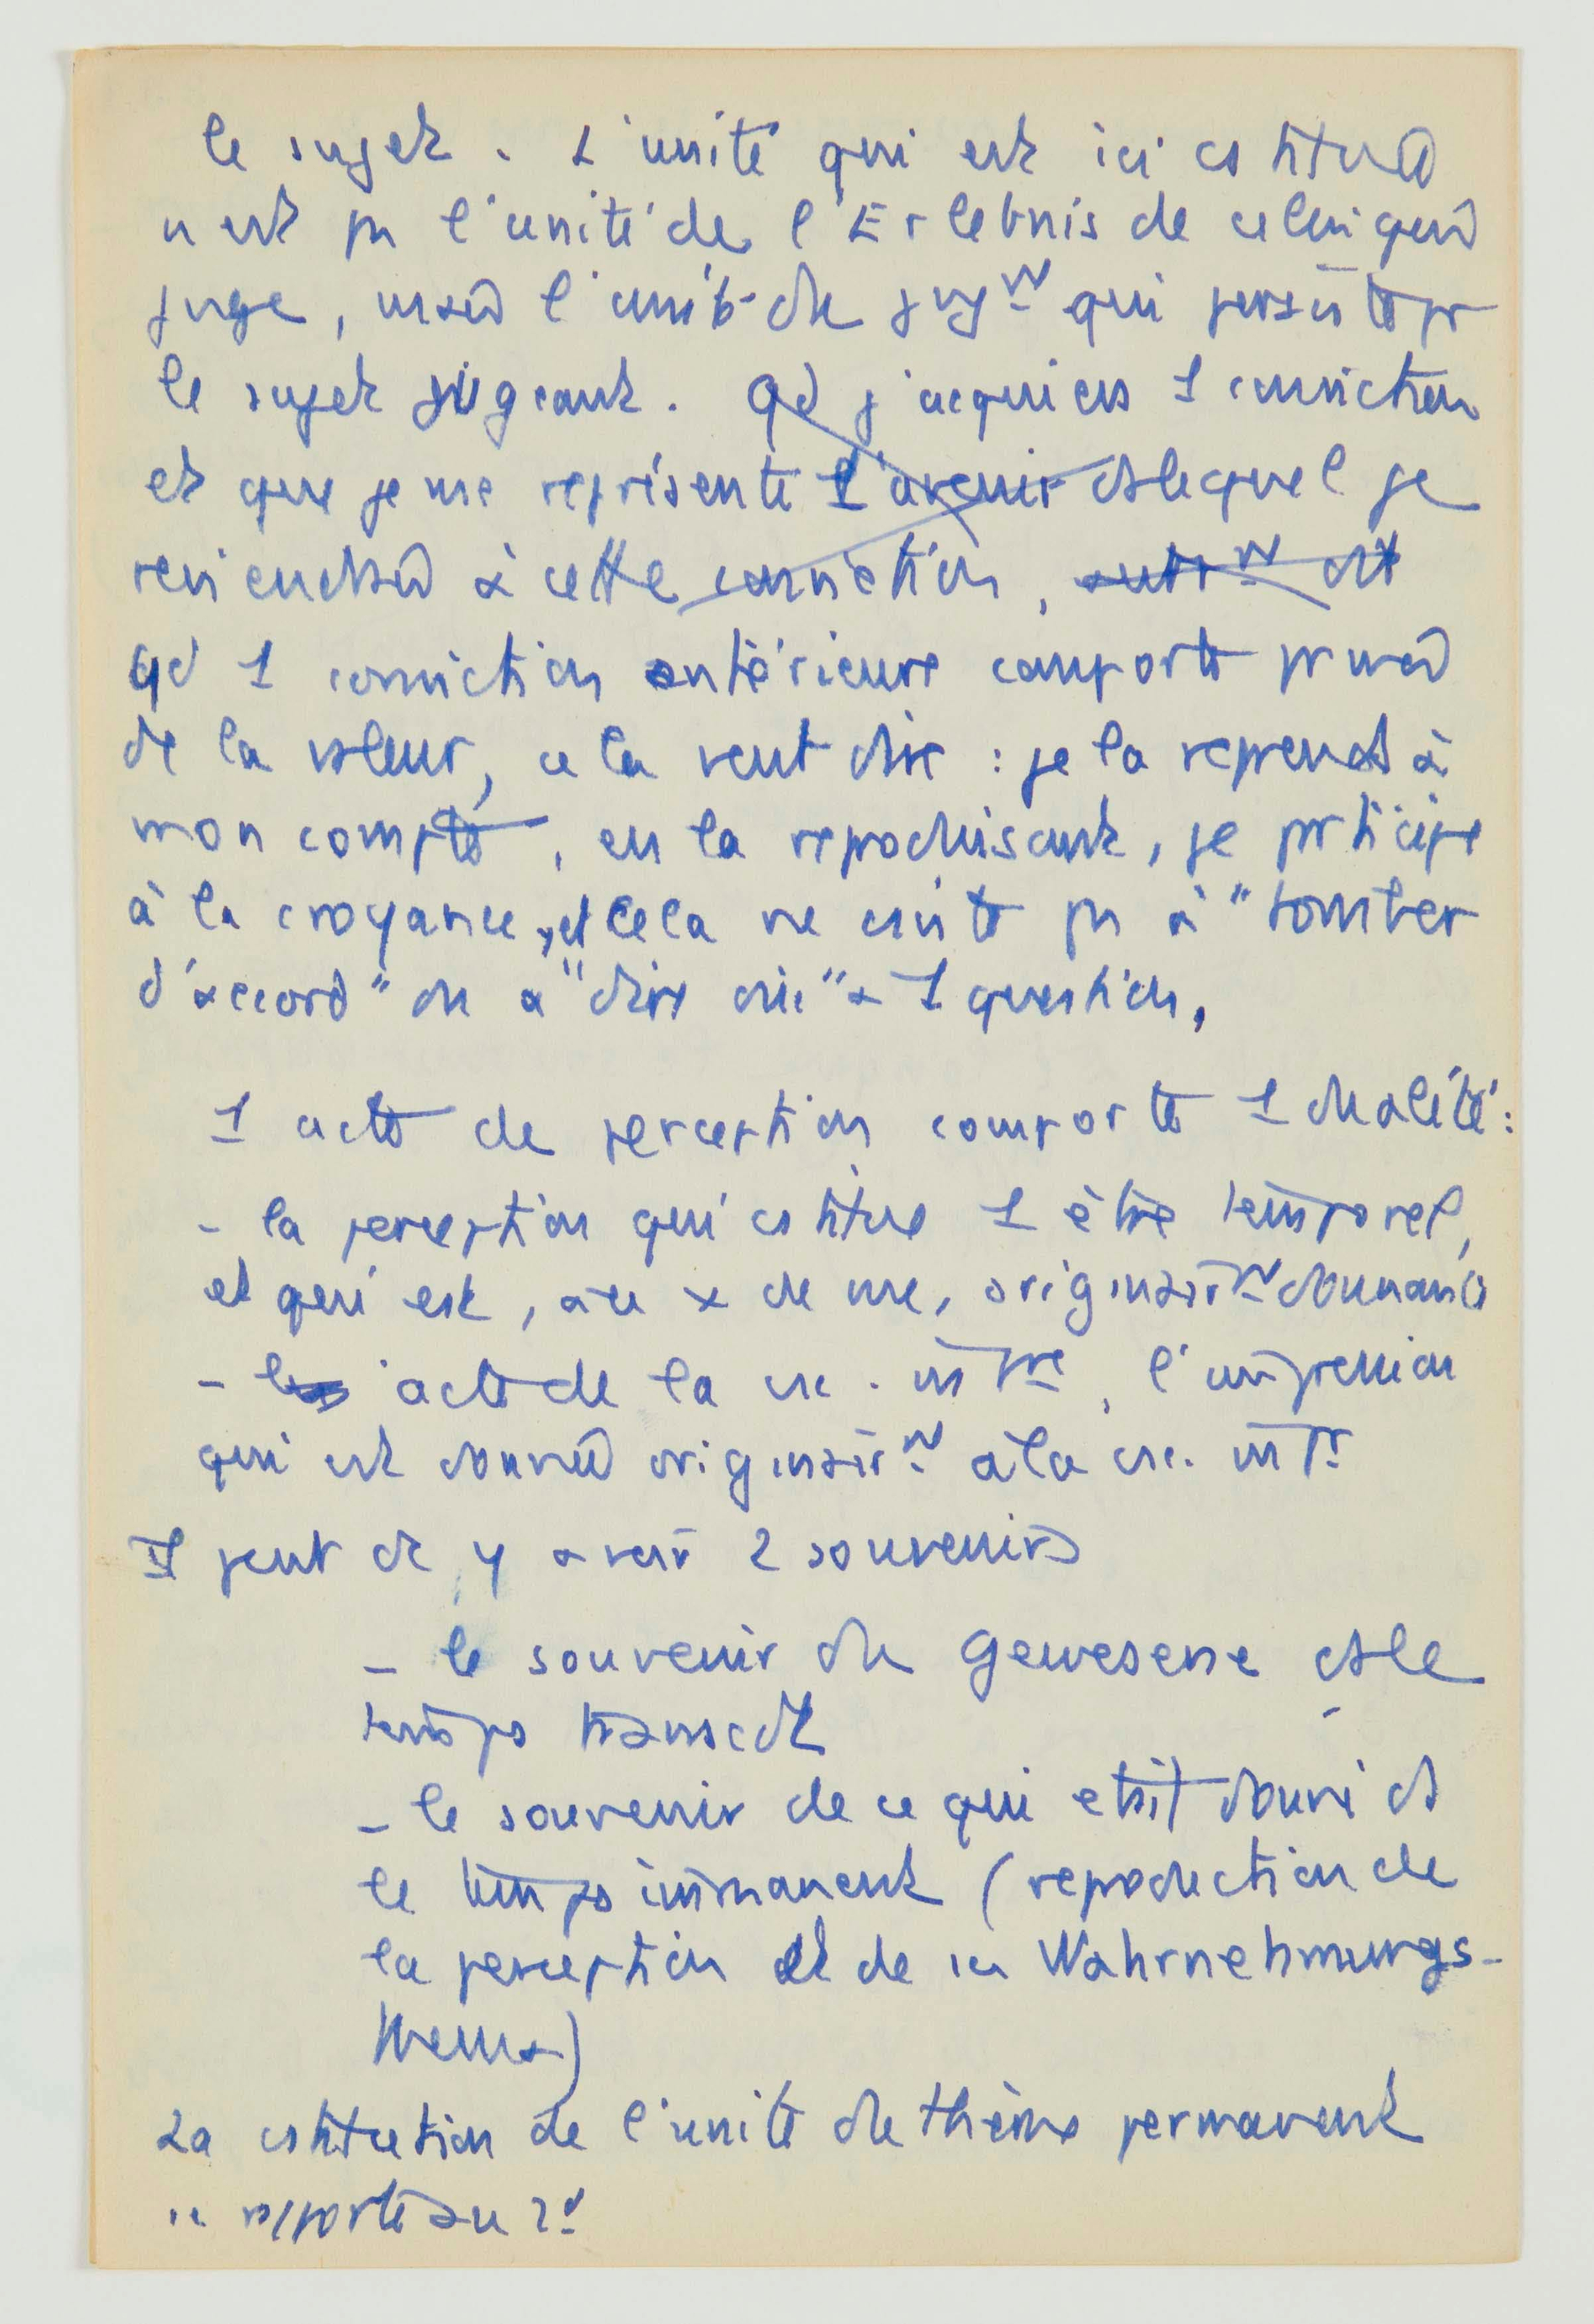 le sujet. L'unité qui est ici cstituée
n'est ps l'unité de l'Erlebnis de celui qui
juge, mais l'unité du jugt qui persiste pr
le sujet jugeant. Qd j'acquiers 1 conviction
et que je me représente l'avenir ds lequel je
reviendrai à cette conviction, autrt dit
qd 1 conviction antérieure comporte pr moi
de la valeur, cela veut dire : je la reprends à
mon compte, en la reproduisant, je prticipe
à la croyance, et cela ne csiste ps à "tomber
d'accord" ou à "dire oui" à 1 question.
1 acte de perception comporte 1 dualité :
- la perception qui cstitue 1 être temporel,
et qui est, aux x de me, originairt donnante
- l'acte de la csc. intre, l'impression
qui est donnée originairt à la csc. intr
Il peut dc y avoir 2 souvenirs
- le souvenir du Gewesene ds le
temps transcdt
- le souvenir de ce qui était donné ds
le temps immanent (reproduction de
la perception et de sa Wahrnehmungs-
thema)
La cstitution de l'unité du thème permanent
se rapporte au 2d